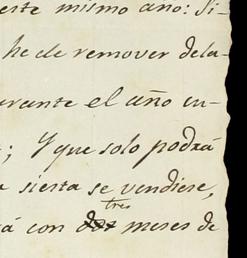 este mismo año: Si-
he de remover dela-
urante el año cu-
; Y que solo podrá
a siesta se vendiese,
tres
rá con dos meses de